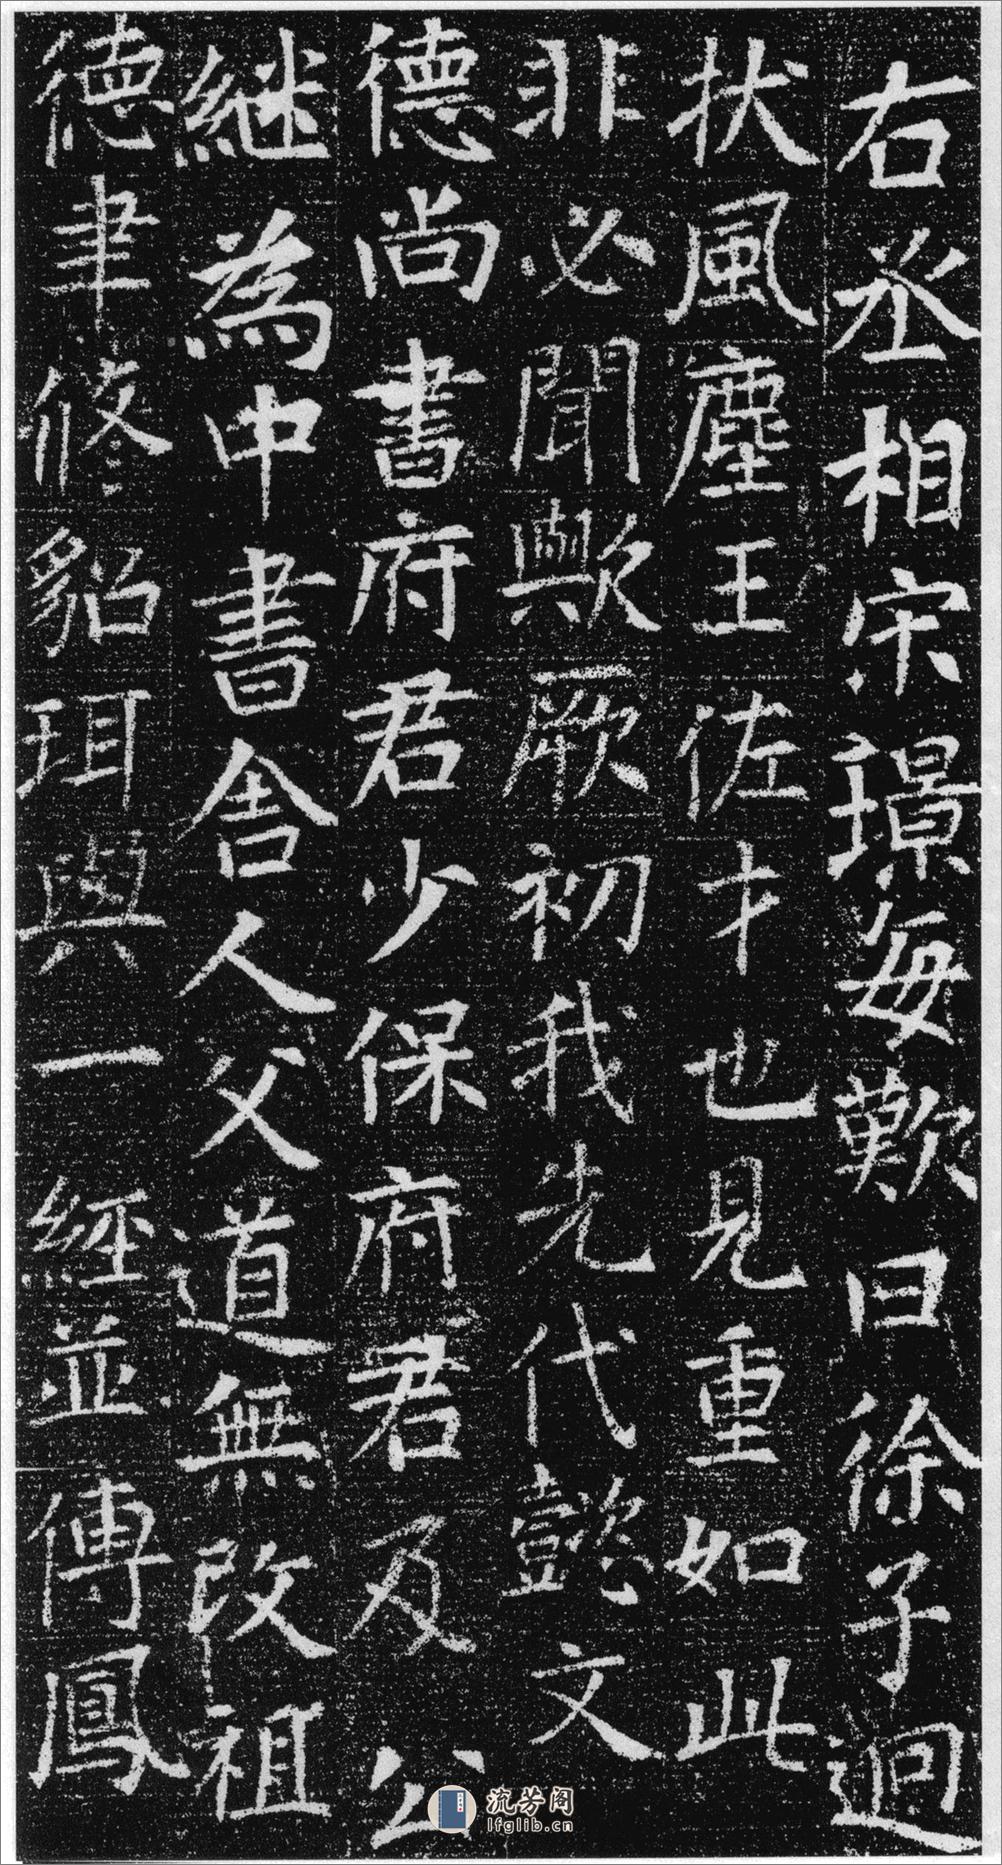 右丞相宋璟每歎曰徐子迥
狀風塵王佐才也見重如此
非必聞歟厥初我先代懿文
德尚書府君少保府君及公
継為中書舍人父道無改祖
德聿修貂珥與一經並傳鳳
流芳阁
lfglib.cn